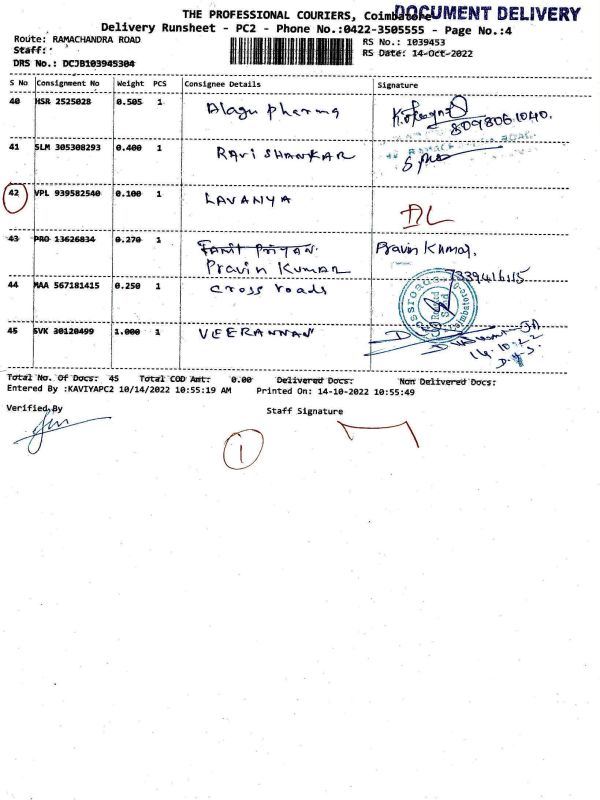 THE PROFESSIONAL COURIERS, Coimbatore
DOCUMENT DELIVERY
Delivery Runsheet - PC2 - Phone No.:0422-3505555 - Page No.:4
Route: RAMACHANDRA ROAD
RS No.: 1039453
Staff:
RS Date: 14-Oct-2022
DRS No.: DCJB103945304
S No Consignment No Weight PCS Consignee Details Signature
40 HSR 2525028 0.505 1 Alagu pharma
8098061040.
41 SLM 305308293 0.400 1 RAVISHANKAR
42 VPL 939582540 0.100 1 LAVANYA DL
43 PRO 13626834 0.270 1 Pravin Kumar,
Pravin KUMAR
7339416115
44 MAA 567181415 0.250 1 cross roads
45 SVK 30120499 1.000 1 VEERANNAN
14.10.22
Total No. Of Docs: 45 Total COD Amt: 0.00 Delivered Docs: Non Delivered Docs:
Entered By :KAVIYAPC2 10/14/2022 10:55:19 AM Printed On: 14-10-2022 10:55:49
Verified By Staff Signature
1